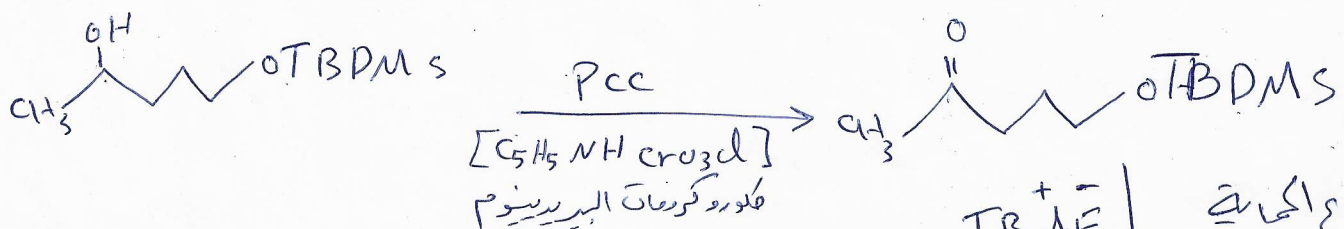 OH
CH3 OTBDMS
PCC
[C5H5NH CrO3Cl]
كلورو كرومات البيريدينيوم
O
CH3 OTBDMS
TBAF
+ -